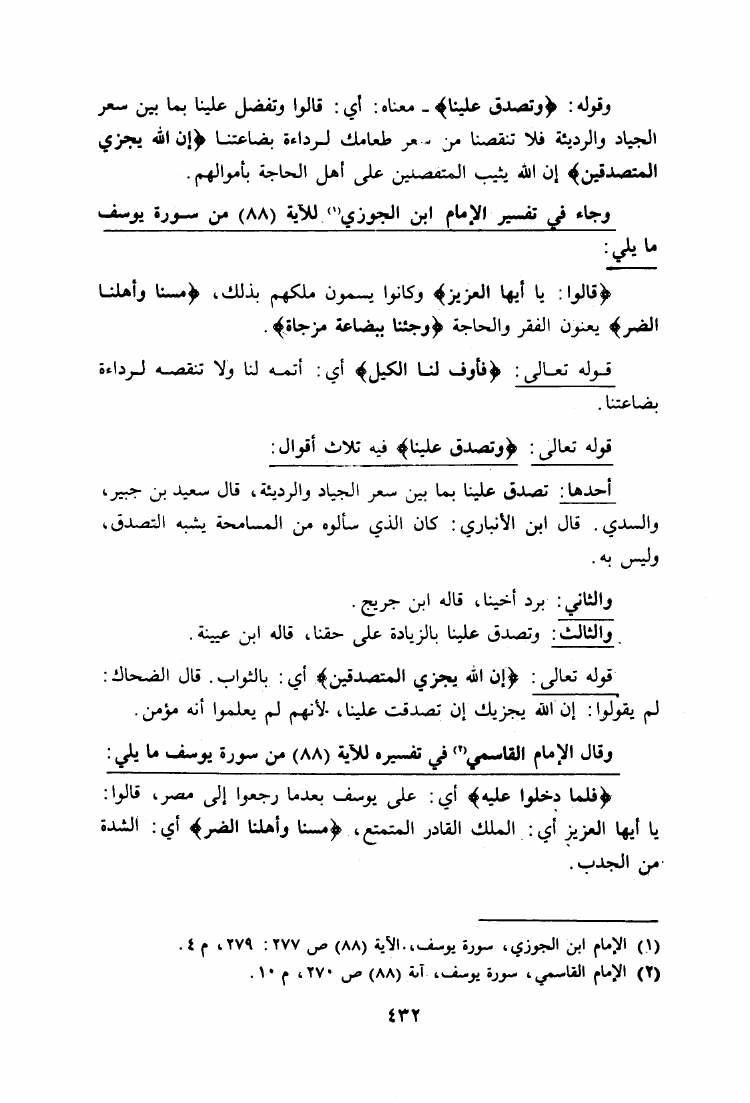 وقوله: ﴿وتصدق علينا﴾ ـ معناه: أي: قالوا وتفضل علينا بما بين سعر
الجياد والرديئة فلا تنقصنا من سعر طعامك لرداءة بضاعتنا ﴿إن الله يجزي
المتصدقين﴾ إن الله يثيب المتفضلين على أهل الحاجة بأموالهم.
وجاء في تفسير الإمام ابن الجوزي(١) للآية (٨٨) من سورة يوسف
ما يلي:
﴿قالوا: يا أيها العزيز﴾ وكانوا يسمون ملكهم بذلك، ﴿مسنا وأهلنا
الضر﴾ يعنون الفقر والحاجة ﴿وجئنا ببضاعة مزجاة﴾.
قوله تعالى: ﴿فأوف لنا الكيل﴾ أي: أتمه لنا ولا تنقصه لرداءة
بضاعتنا.
قوله تعالى: ﴿وتصدق علينا﴾ فيه ثلاث أقوال:
أحدها: تصدق علينا بما بين سعر الجياد والرديئة، قال سعيد بن جبير،
والسدي. قال ابن الأنباري: كان الذي سألوه من المسامحة يشبه التصدق،
وليس به.
والثاني: برد أخينا، قاله ابن جريج.
والثالث: وتصدق علينا بالزيادة على حقنا، قاله ابن عيينة.
قوله تعالى: ﴿إن الله يجزي المتصدقين﴾ أي: بالثواب. قال الضحاك:
لم يقولوا: إن الله يجزيك إن تصدقت علينا، لأنهم لم يعلموا أنه مؤمن.
وقال الإمام القاسمي(٢) في تفسيره للآية (٨٨) من سورة يوسف ما يلي:
﴿فلما دخلوا عليه﴾ أي: على يوسف بعدما رجعوا إلى مصر، قالوا:
يا أيها العزيز أي: الملك القادر المتمتع، ﴿مسنا وأهلنا الضر﴾ أي: الشدة
من الجدب.
(١) الإمام ابن الجوزي، سورة يوسف، الآية (٨٨) ص ٢٧٧: ٢٧٩، م ٤.
(٢) الإمام القاسمي، سورة يوسف، آية (٨٨) ص ٢٧٠، م ١٠.
٤٣٢